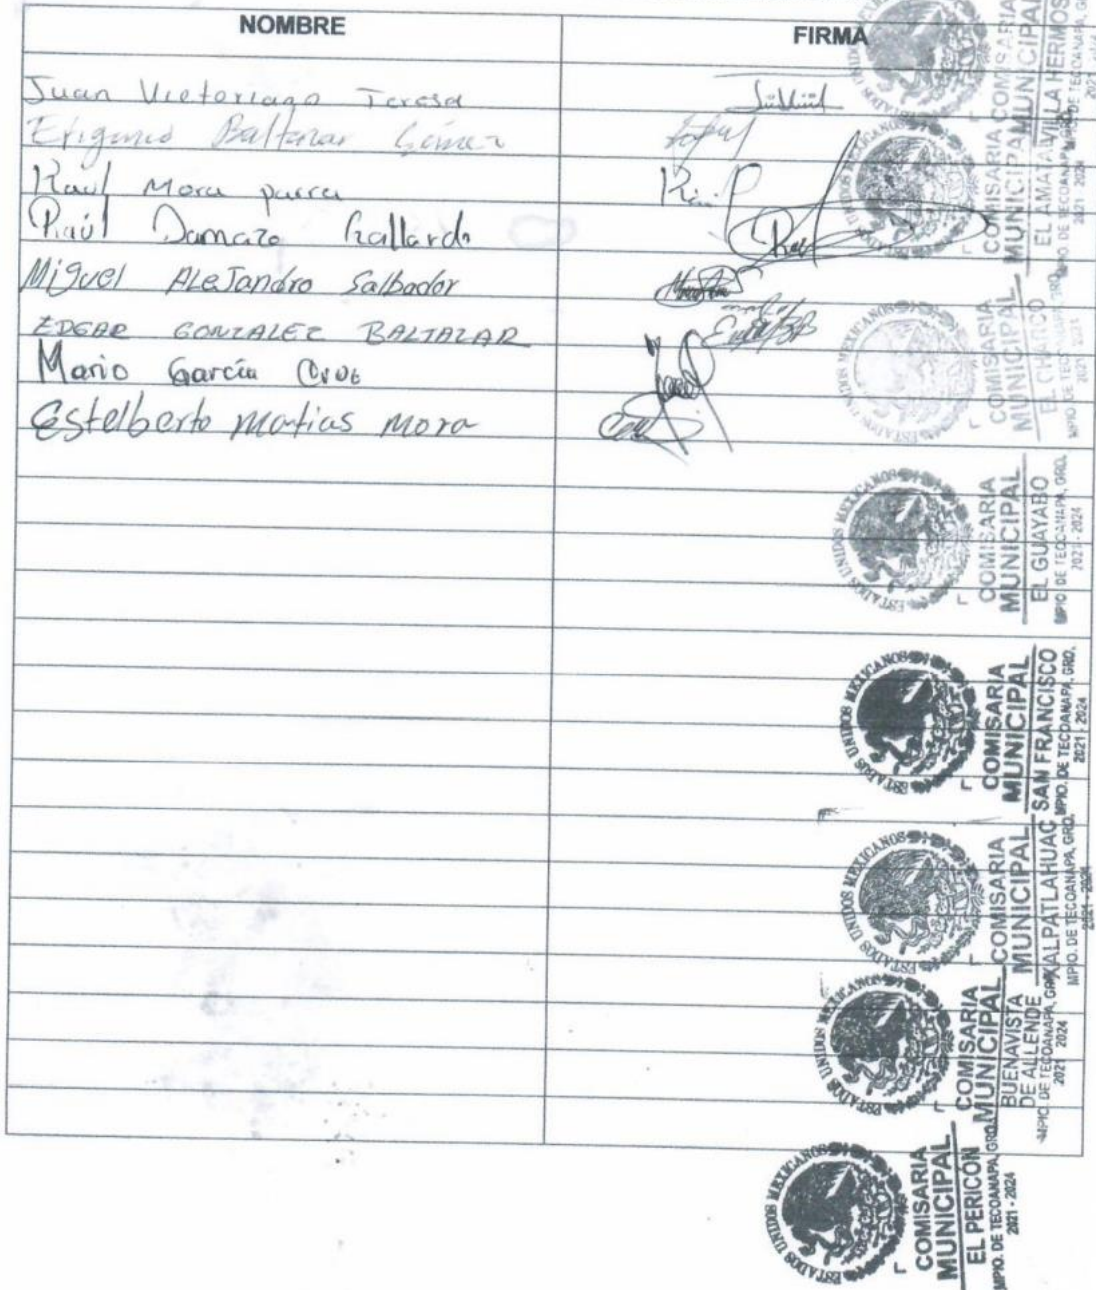 NOMBRE
FIRMA
Juan Victoriano Teresa
Baltazar Gómez
Raúl Mora parra
Raúl Damazo Gallardo
Miguel ALeJandro Salbador
EDGAR GONZALEZ BALTAZAR
Mario García Cruz
Estelberto Matias Mora
ESTADOS UNIDOS
COMISARIA
MUNICIPAL
VILLA HERMOSA
DE TECOANAPA, GRO.
2021
ESTADOS UNIDOS MEXICANOS
COMISARIA
MUNICIPAL
EL AMATAL
MPIO. DE TECOANAPA, GRO.
2021 - 2024
ESTADOS UNIDOS MEXICANOS
COMISARIA
MUNICIPAL
EL CHARCO
MPIO. DE TECOANAPA, GRO.
ESTADOS UNIDOS MEXICANOS
COMISARIA
MUNICIPAL
EL GUAYABO
MPIO. DE TECOANAPA, GRO.
2021 - 2024
ESTADOS UNIDOS MEXICANOS
COMISARIA
MUNICIPAL
SAN FRANCISCO
MPIO. DE TECOANAPA, GRO.
2021 - 2024
ESTADOS UNIDOS MEXICANOS
COMISARIA
MUNICIPAL
XALPATLAHUAC
MPIO. DE TECOANAPA, GRO.
2021 - 2024
ESTADOS UNIDOS MEXICANOS
COMISARIA
MUNICIPAL
BUENAVISTA
DE ALLENDE
MPIO. DE TECOANAPA, GRO.
2021 2024
ESTADOS UNIDOS MEXICANOS
COMISARIA
MUNICIPAL
EL PERICON
MPIO. DE TECOANAPA, GRO.
2021 - 2024